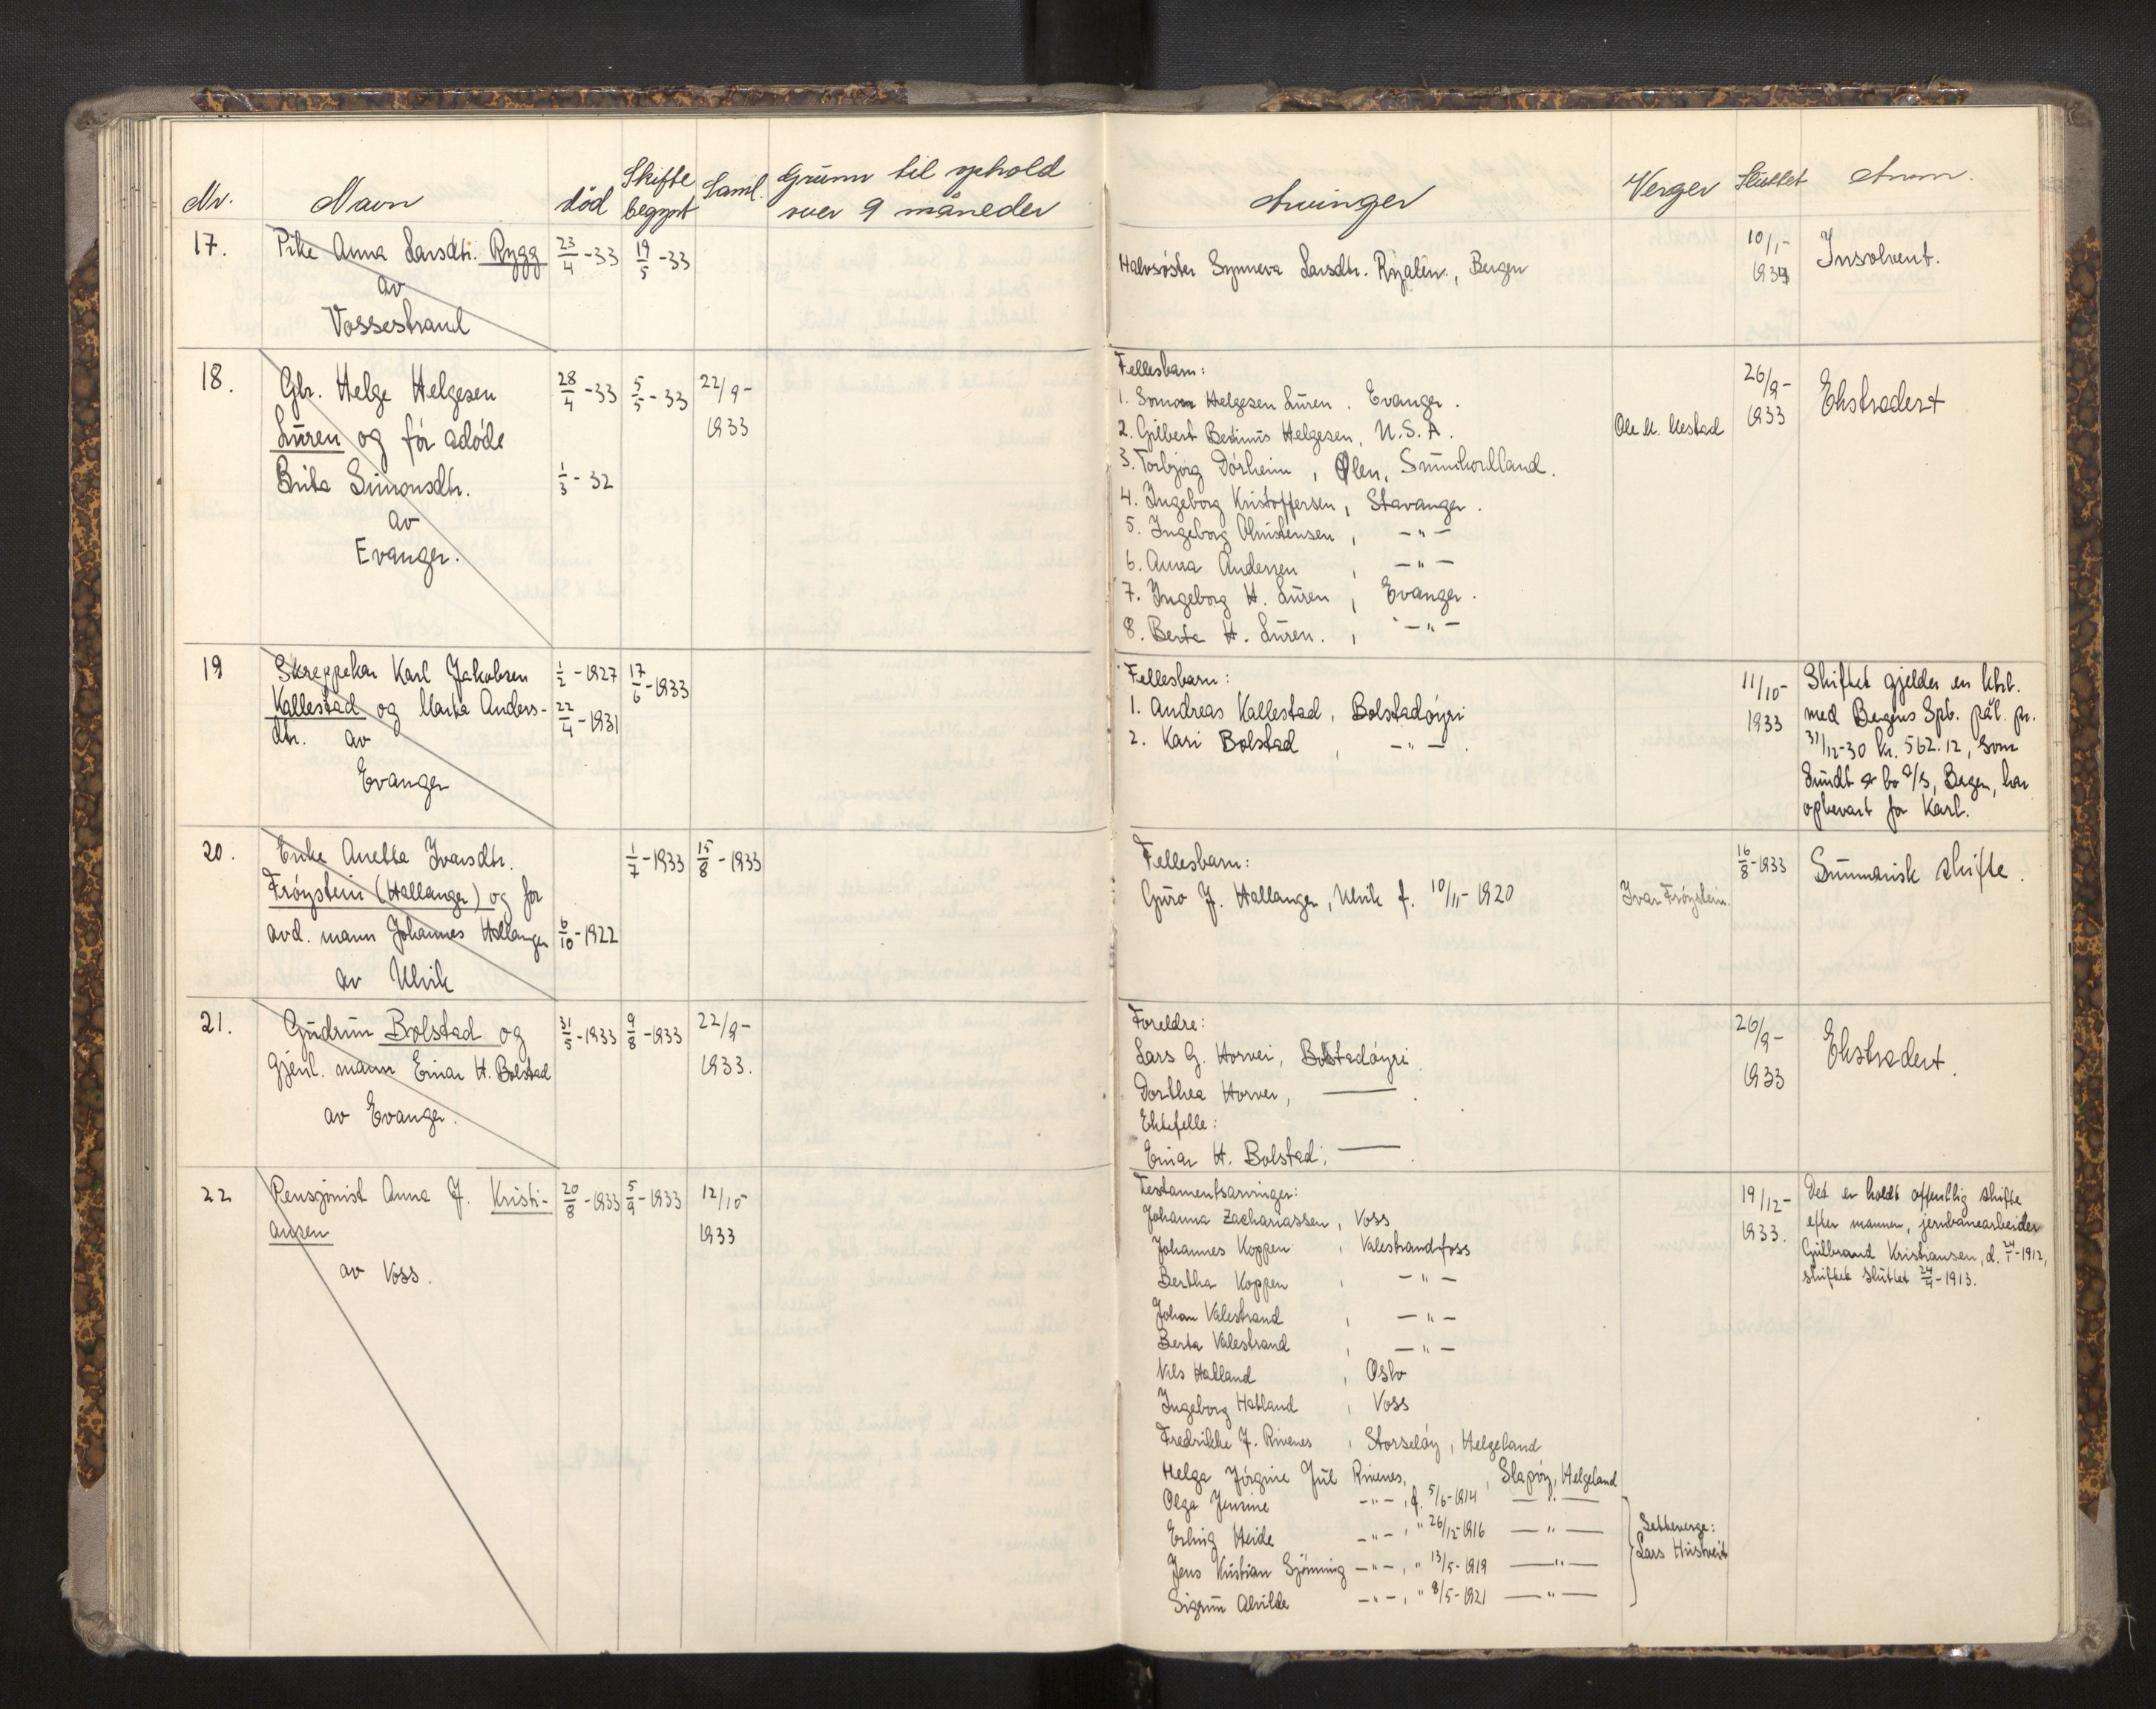 Nr. Navn død Skifte begynt Saml. Grunn til ophold over 9 måneder Arvinger Verger Sluttet Anm.
17. Pike Anna Larsdtr. Rygg 23/4-33 19/5-33
av
Vossestrand
Halvsøster Synneva Larsdtr. Rjalen, Bergen 10/1-
1934 Insolvent.
18. Gbr. Helge Helgesen 28/4-33 5/5-33 22/9-
Lüren og før adøde 1933
Brita Simonsdtr. 1/3-32
av
Evanger.
Fellesbarn:
1. Simon Helgesen Lüren. Evanger. 26/9- Ekstradert
2. Gilbert Bertinus Helgesen, U.S.A. Ole M. Mestad 1933
3. Torbjørg Dørheim, Ølen, Sunnhordland.
4. Ingeborg Kristoffersen, Stavanger.
5. Ingeborg Christensen, -"-
6. Anna Andersen, -"-
7. Ingeborg H. Lüren, Evanger.
8. Berta H. Lüren., -"-
19 Skreppekar Karl Jakobsen 1/2-1927 17/6-1933
Kallestad og Marta Anders- 22/4-1931
dtr. av
Evanger
Fellesbarn:
1. Andreas Kallestad, Bolstadøyri
2. Kari Bolstad, -"-.
11/10-
1933
Skiftet gjelder en ktrb.
med Bergens Spb. pål. pr.
31/12-30 kr. 562.12, som
Sundt & Co A/S, Bergen, har
opbevart for Karl.
20. Enke Anetta Ivarsdtr. 1/7-1933 15/8-1933
Frøystein (Hallanger) og før
avd. mann Johannes Hallanger 6/10-1922
av Ulvik
Fellesbarn:
Guro J. Hallanger, Ulvik f. 10/11-1920 Ivar Frøystein. 16/8-1933 Summarisk skifte.
21. Gudrun Bolstad og 31/5-1933 9/8-1933 22/9-
gjenl. mann Einar H. Bolstad 1933.
av Evanger.
Foreldre:
Lars G. Horvei, Bolstadøyri. 26/9- Ekstradert.
Dorthea Horvei, ——. 1933
Ektefelle:
Einar H. Bolstad, ——.
22 Pensjonist Anna J. Kristi- 20/8-1933 5/9-1933 12/10
ansen 1933
av Voss.
Testamentsarvinger:
Johanna Zachariassen, Voss
Johannes Koppen, Valestrandfoss
Bertha Koppen, -"-
Johan Valestrand, -"-
Berta Valestrand, -"-
Nils Hatland, Oslo
Ingeborg Hatland, Voss
Fredrikke J. Rivenes, Storseløy, Helgeland
Helga Jørgine Jül Rivenes, Slapøy, Helgeland
Olga Jensine -"-, f. 5/6-1914 -"-
Erling Heide -"-, " 26/12-1916 -"-
Jens Kristian Sjönning -"-, " 13/5-1919 -"-
Sigrun Alvilde -"-, " 8/5-1921 -"-
Setteverge:
Lars Hustveit
19/12-
1933.
Det er holdt offentlig skifte
efter mannen, jernbanearbeider
Gulbrand Kristiansen, d. 24/1-1912,
skiftet sluttet 24/4-1913.